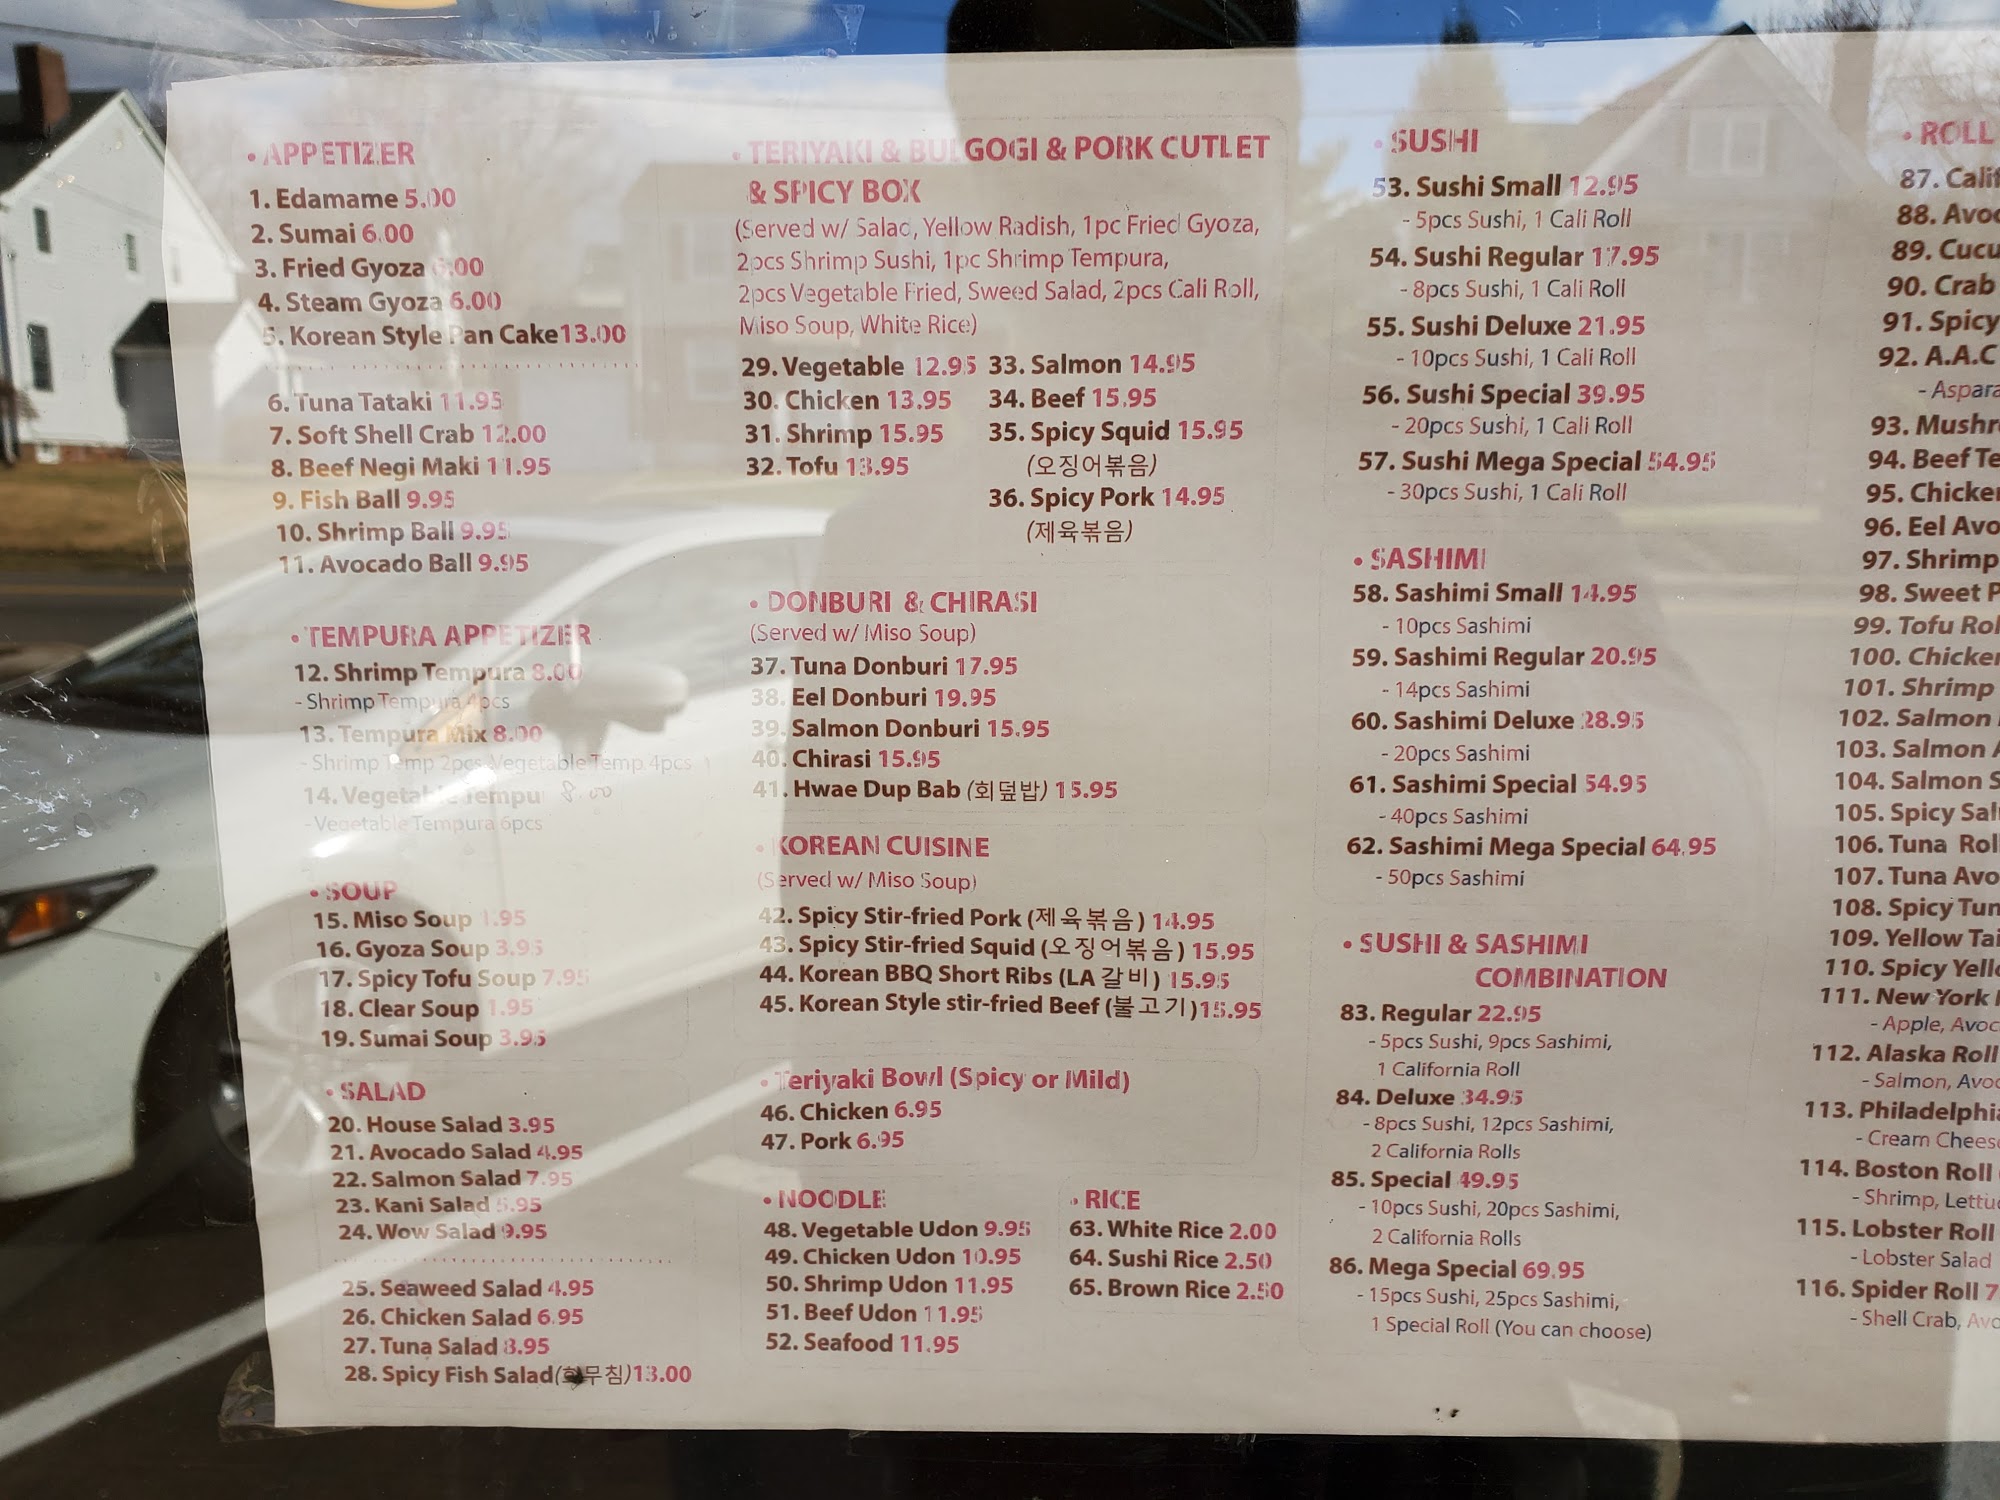 • APPETIZER
1. Edamame 5.00
2. Sumai 6.00
3. Fried Gyoza 6.00
4. Steam Gyoza 6.00
5. Korean Style Pan Cake13.00
6. Tuna Tataki 11.95
7. Soft Shell Crab 12.00
8. Beef Negi Maki 11.95
9. Fish Ball 9.95
10. Shrimp Ball 9.95
11. Avocado Ball 9.95
• TEMPURA APPETIZER
12. Shrimp Tempura 8.00
- Shrimp Tempura 4pcs
13. Tempura Mix 8.00
- Shrimp Temp 2pcs Vegetable Temp 4pcs
14. Vegetable Tempu 8.00
- Vegetable Tempura 6pcs
• SOUP
15. Miso Soup 1.95
16. Gyoza Soup 3.95
17. Spicy Tofu Soup 7.95
18. Clear Soup 1.95
19. Sumai Soup 3.95
• SALAD
20. House Salad 3.95
21. Avocado Salad 4.95
22. Salmon Salad 7.95
23. Kani Salad
24. Wow Salad 9.95
25. Seaweed Salad 4.95
26. Chicken Salad 6.95
27. Tuna Salad 8.95
28. Spicy Fish Salad(회무침)13.00
• TERIYAKI & BULGOGI & PORK CUTLET
& SPICY BOX
(Served w/ Salad, Yellow Radish, 1pc Fried Gyoza,
2pcs Shrimp Sushi, 1pc Shrimp Tempura,
2pcs Vegetable Fried, Sweed Salad, 2pcs Cali Roll,
Miso Soup, White Rice)
29. Vegetable 12.95
30. Chicken 13.95
31. Shrimp 15.95
32. Tofu 13.95
33. Salmon 14.95
34. Beef 15.95
35. Spicy Squid 15.95
(오징어볶음)
36. Spicy Pork 14.95
(제육볶음)
• DONBURI & CHIRASI
(Served w/ Miso Soup)
37. Tuna Donburi 17.95
38. Eel Donburi 19.95
39. Salmon Donburi 15.95
40. Chirasi 15.95
41. Hwae Dup Bab (회덮밥) 15.95
• KOREAN CUISINE
(Served w/ Miso Soup)
42. Spicy Stir-fried Pork (제육볶음) 14.95
43. Spicy Stir-fried Squid (오징어볶음) 15.95
44. Korean BBQ Short Ribs (LA 갈비) 15.95
45. Korean Style stir-fried Beef (불고기)15.95
• Teriyaki Bowl (Spicy or Mild)
46. Chicken 6.95
47. Pork 6.95
• NOODLE
48. Vegetable Udon 9.95
49. Chicken Udon 10.95
50. Shrimp Udon 11.95
51. Beef Udon 11.95
52. Seafood 11.95
• RICE
63. White Rice 2.00
64. Sushi Rice 2.50
65. Brown Rice 2.50
• SUSHI
53. Sushi Small 12.95
- 5pcs Sushi, 1 Cali Roll
54. Sushi Regular 17.95
- 8pcs Sushi, 1 Cali Roll
55. Sushi Deluxe 21.95
- 10pcs Sushi, 1 Cali Roll
56. Sushi Special 39.95
- 20pcs Sushi, 1 Cali Roll
57. Sushi Mega Special 54.95
- 30pcs Sushi, 1 Cali Roll
• SASHIMI
58. Sashimi Small 14.95
- 10pcs Sashimi
59. Sashimi Regular 20.95
- 14pcs Sashimi
60. Sashimi Deluxe 28.95
- 20pcs Sashimi
61. Sashimi Special 54.95
- 40pcs Sashimi
62. Sashimi Mega Special 64.95
- 50pcs Sashimi
• SUSHI & SASHIMI
COMBINATION
83. Regular 22.95
- 5pcs Sushi, 9pcs Sashimi,
1 California Roll
84. Deluxe 34.95
- 8pcs Sushi, 12pcs Sashimi,
2 California Rolls
85. Special 49.95
- 10pcs Sushi, 20pcs Sashimi,
2 California Rolls
86. Mega Special 69.95
- 15pcs Sushi, 25pcs Sashimi,
1 Special Roll (You can choose)
• ROLL
87. Calif
88. Avoc
89. Cucu
90. Crab
91. Spicy
92. A.A.C
- Aspara
93. Mushr
94. Beef Te
95. Chicken
96. Eel Avo
97. Shrimp
98. Sweet P
99. Tofu Rol
100. Chicken
101. Shrimp
102. Salmon
103. Salmon A
104. Salmon S
105. Spicy Sal
106. Tuna Rol
107. Tuna Avo
108. Spicy Tun
109. Yellow Tai
110. Spicy Yello
111. New York
- Apple, Avoc
112. Alaska Roll
- Salmon, Avoc
113. Philadelphia
- Cream Cheese
114. Boston Roll
- Shrimp, Lettuc
115. Lobster Roll
- Lobster Salad
116. Spider Roll 7
- Shell Crab, Avo